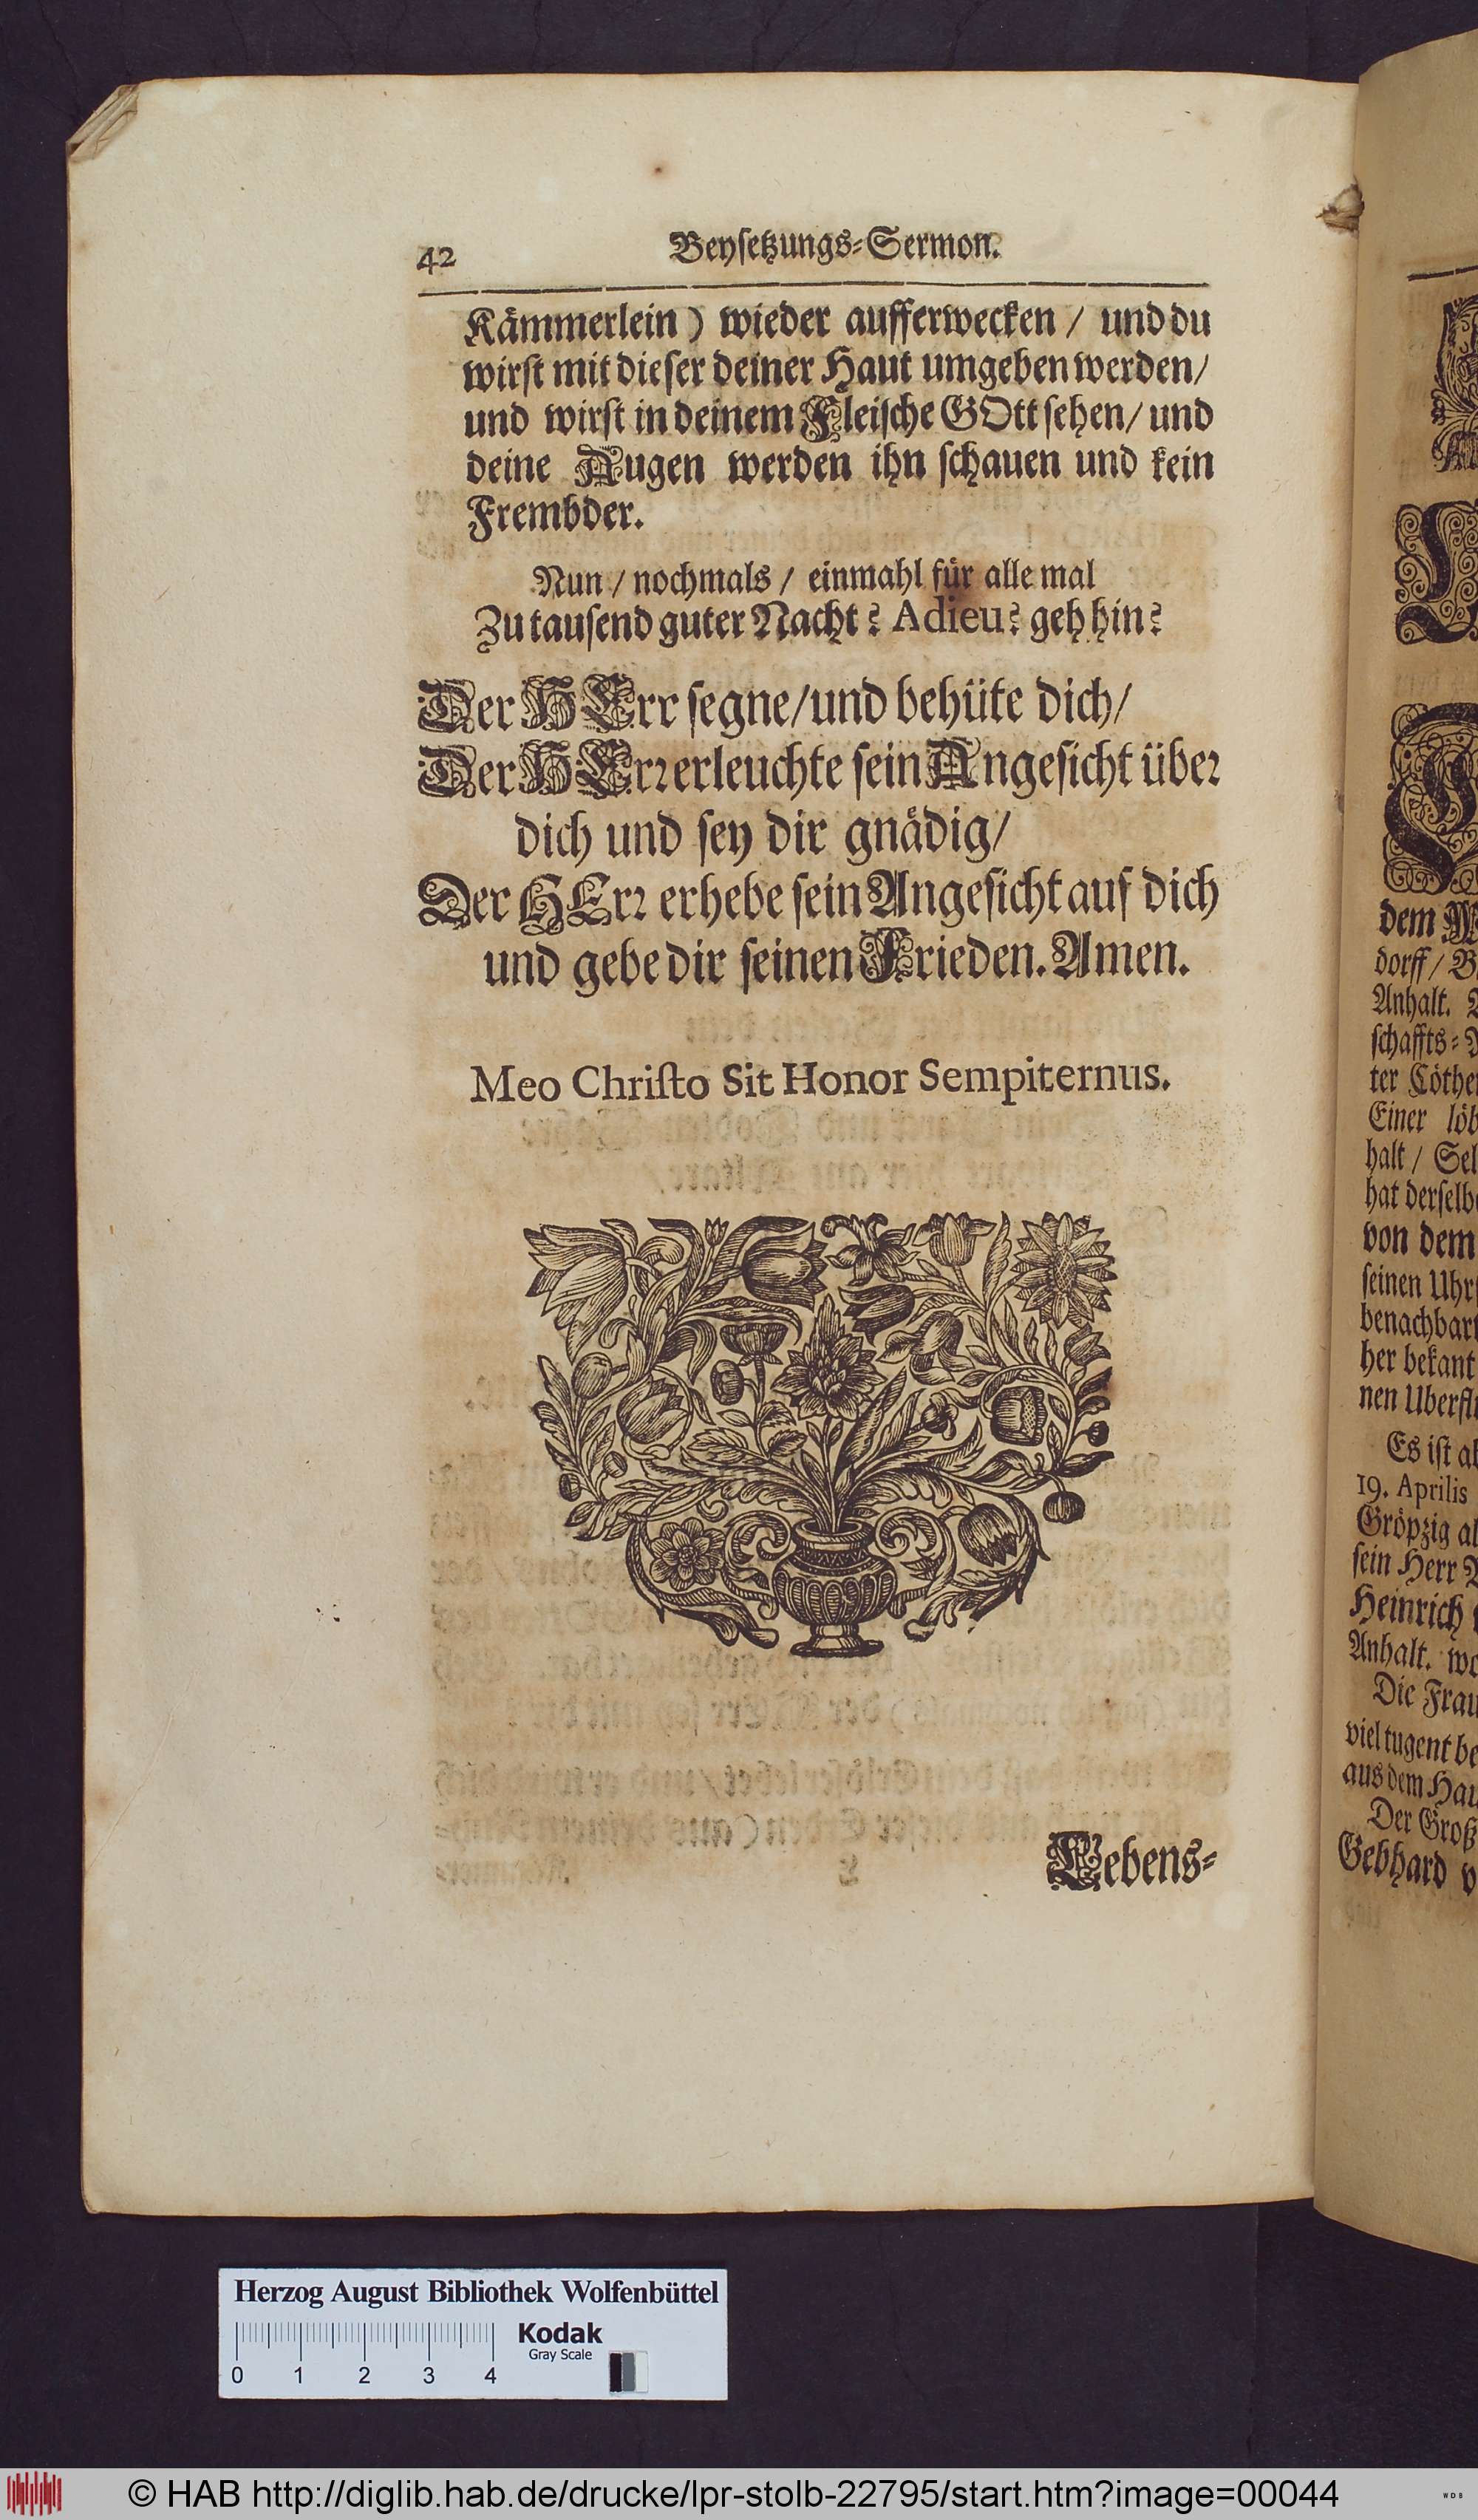 42
Beysetzungs-Sermon.
Kämmerlein) wieder aufferwecken / und du
wirst mit dieser deiner Haut umgeben werden/
und wirst in deinem Fleische GOtt sehen/ und
deine Augen werden ihn schauen und kein
Frembder.
Nun / nochmals / einmahl für alle mal
Zu tausend guter Nacht? Adieu? geh hin?
Der HErr segne/und behüte dich/
Der HErr erleuchte sein Angesicht über
dich und sey dir gnädig/
Der HErr erhebe sein Angesicht auf dich
und gebe dir seinen Frieden. Amen.
Meo Christo Sit Honor Sempiternus.
Lebens-
dem
dorff /
Anhalt.
schaffts-
ter Cöthe
Einer löb
halt / Sel
hat derselb
von dem
seinen Uhr
benachbart
her bekant
nen Uberfl
Es ist al
19. Aprilis
Gröpzig al
sein Herr
Heinrich
Anhalt. wo
Die Frau
viel tugent be
aus dem Hau
Der Groß
Gebhard v
Herzog August Bibliothek Wolfenbüttel
Kodak
Gray Scale
0 1 2 3 4
© HAB http://diglib.hab.de/drucke/lpr-stolb-22795/start.htm?image=00044
WDB